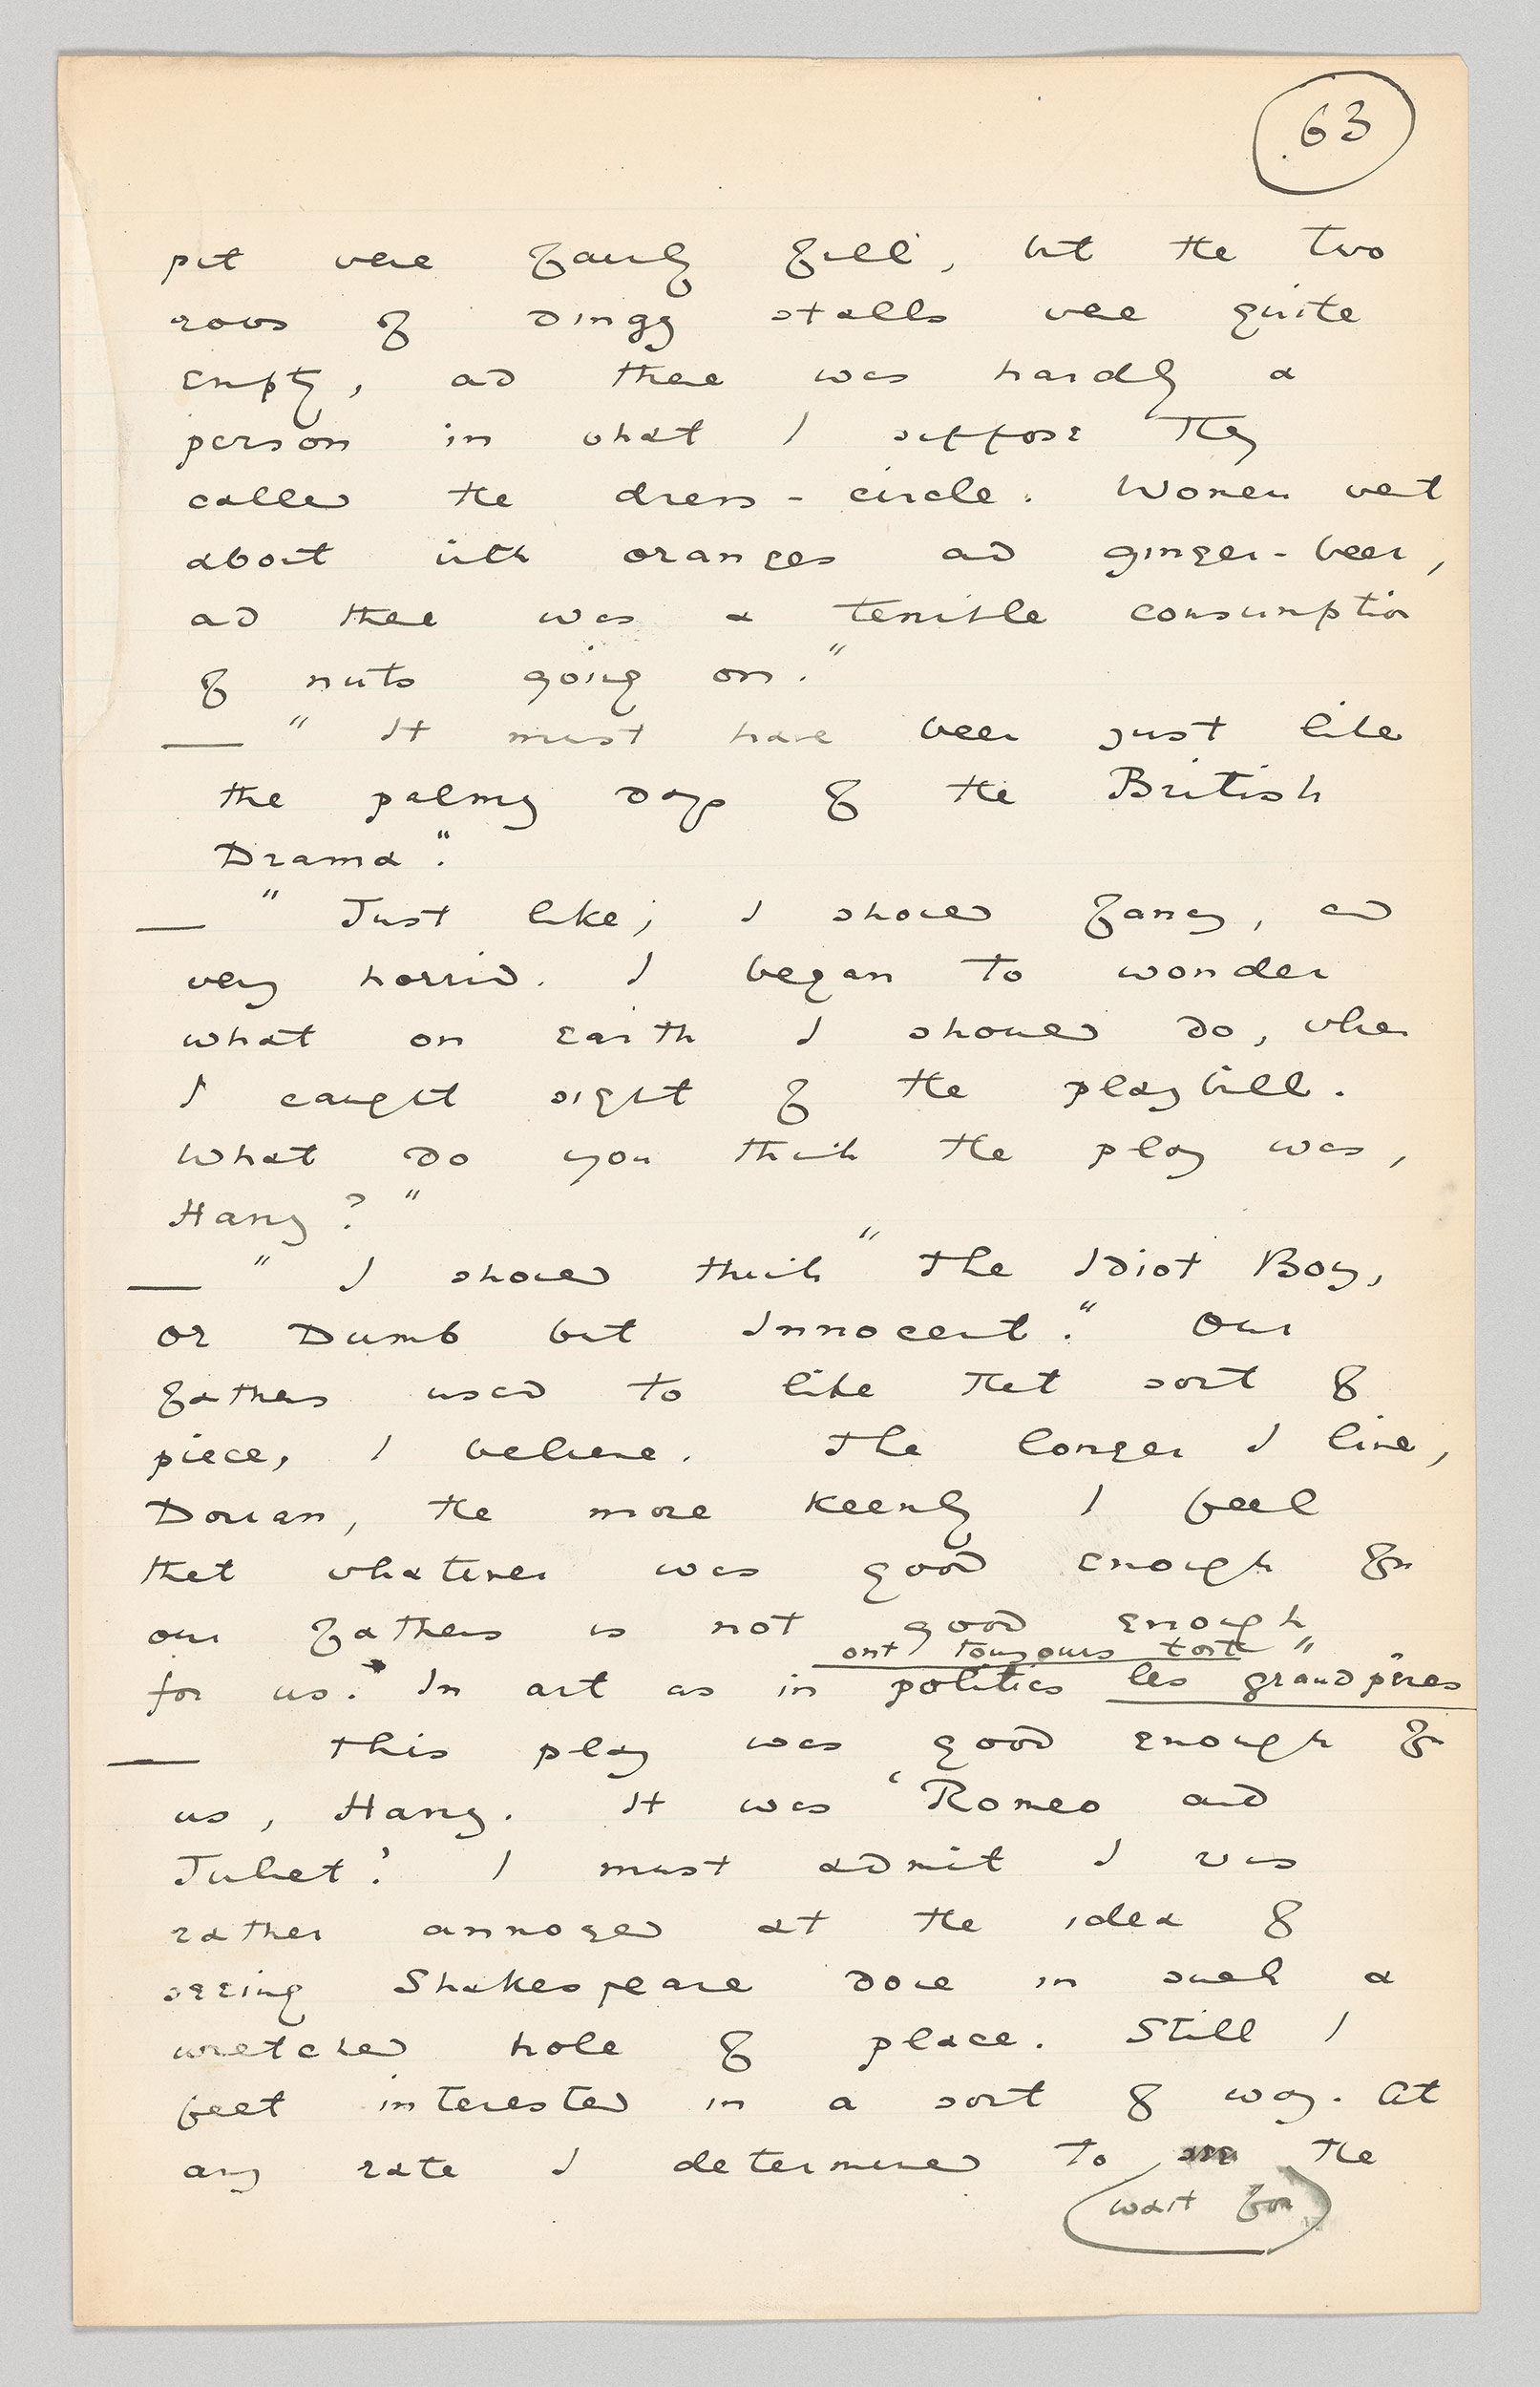 63
pit were fairly full, but the two
rows of dingy stalls were quite
empty, and there was hardly a
person in what I suppose they
called the dress-circle. Women went
about with oranges and ginger-beer,
and there was a terrible consumption
of nuts going on."
— "It must have been just like
the palmy days of the British
Drama."
— "Just like, I should fancy, and
very horrid. I began to wonder
what on earth I should do, when
I caught sight of the playbill.
What do you think the play was,
Harry?"
— "I should think "The Idiot Boy,
or Dumb but Innocent." Our
fathers used to like that sort of
piece, I believe. The longer I live,
Dorian, the more keenly I feel
that whatever was good enough for
our fathers is not good enough
for us. In art as in politics les grandpères
ont toujours tort"
— This play was good enough for
us, Harry. It was 'Romeo and
Juliet.' I must admit I was
rather annoyed at the idea of
seeing Shakespeare done in such a
wretched hole of a place. Still I
felt interested in a sort of way. At
any rate I determined to wait for the